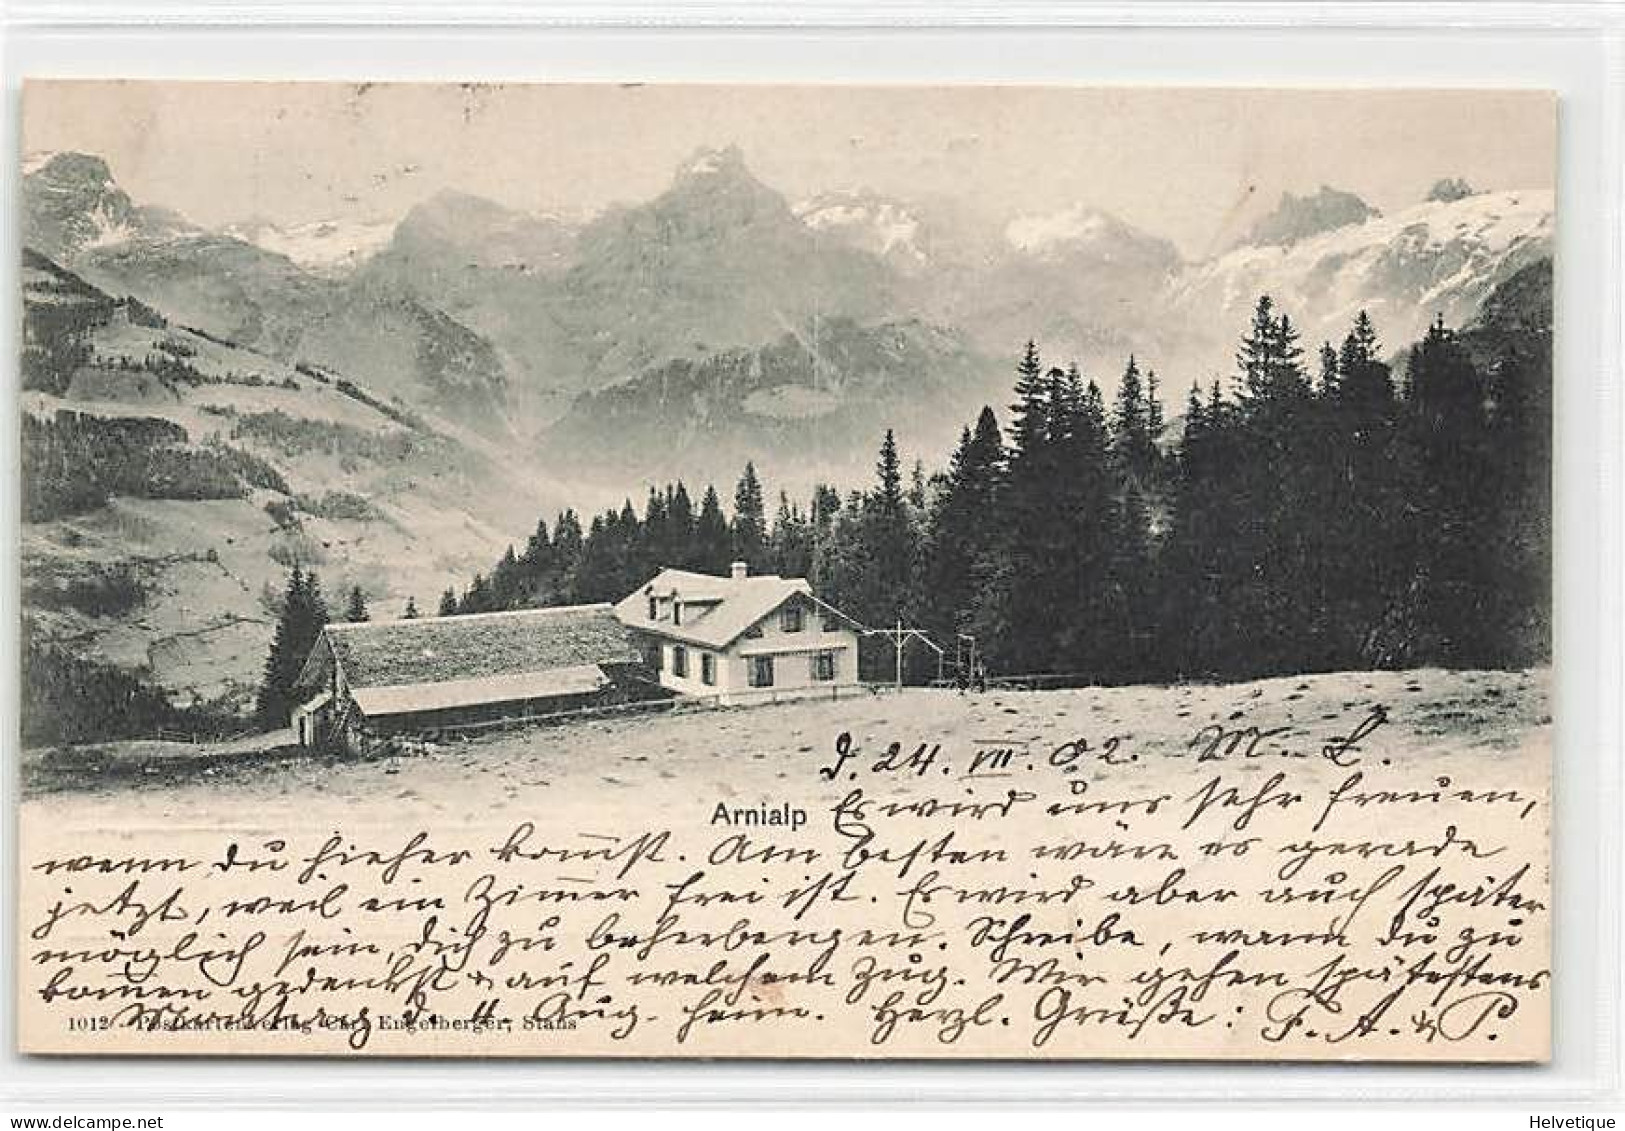 d. 24. VII. 02. M. L.
Arnialp
Es wird uns sehr freuen,
wenn du hieher kom̅st. Am besten wäre es gerade
jetzt, weil ein Zim̅er frei ist. Es wird aber auch später
möglich sein, dich zu beherbergen. Schreibe, wann du zu
kom̅en gedenkst & auf welchem Zug. Wir gehen spätestens
Montag d. 4. Aug. heim. Herzl. Grüße: F. A. & P.
1012 - Postkartenverlag Carl Engelberger, Stans
Helvetique